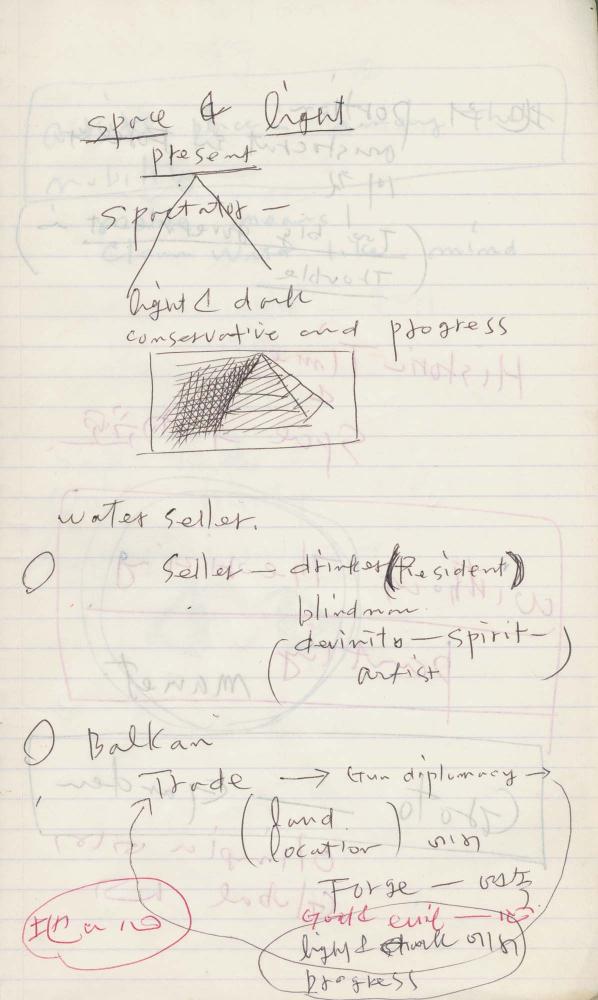 space & light
present
Spectator —
light & dark
conservative and progress
water seller.
Seller — drinker (Resident)
blindman
(devinity — spirit —
artist)
Balkan
Trade → Gun diplomacy →
(land
location)
Forge —
Good & evil —
light & dark
progress